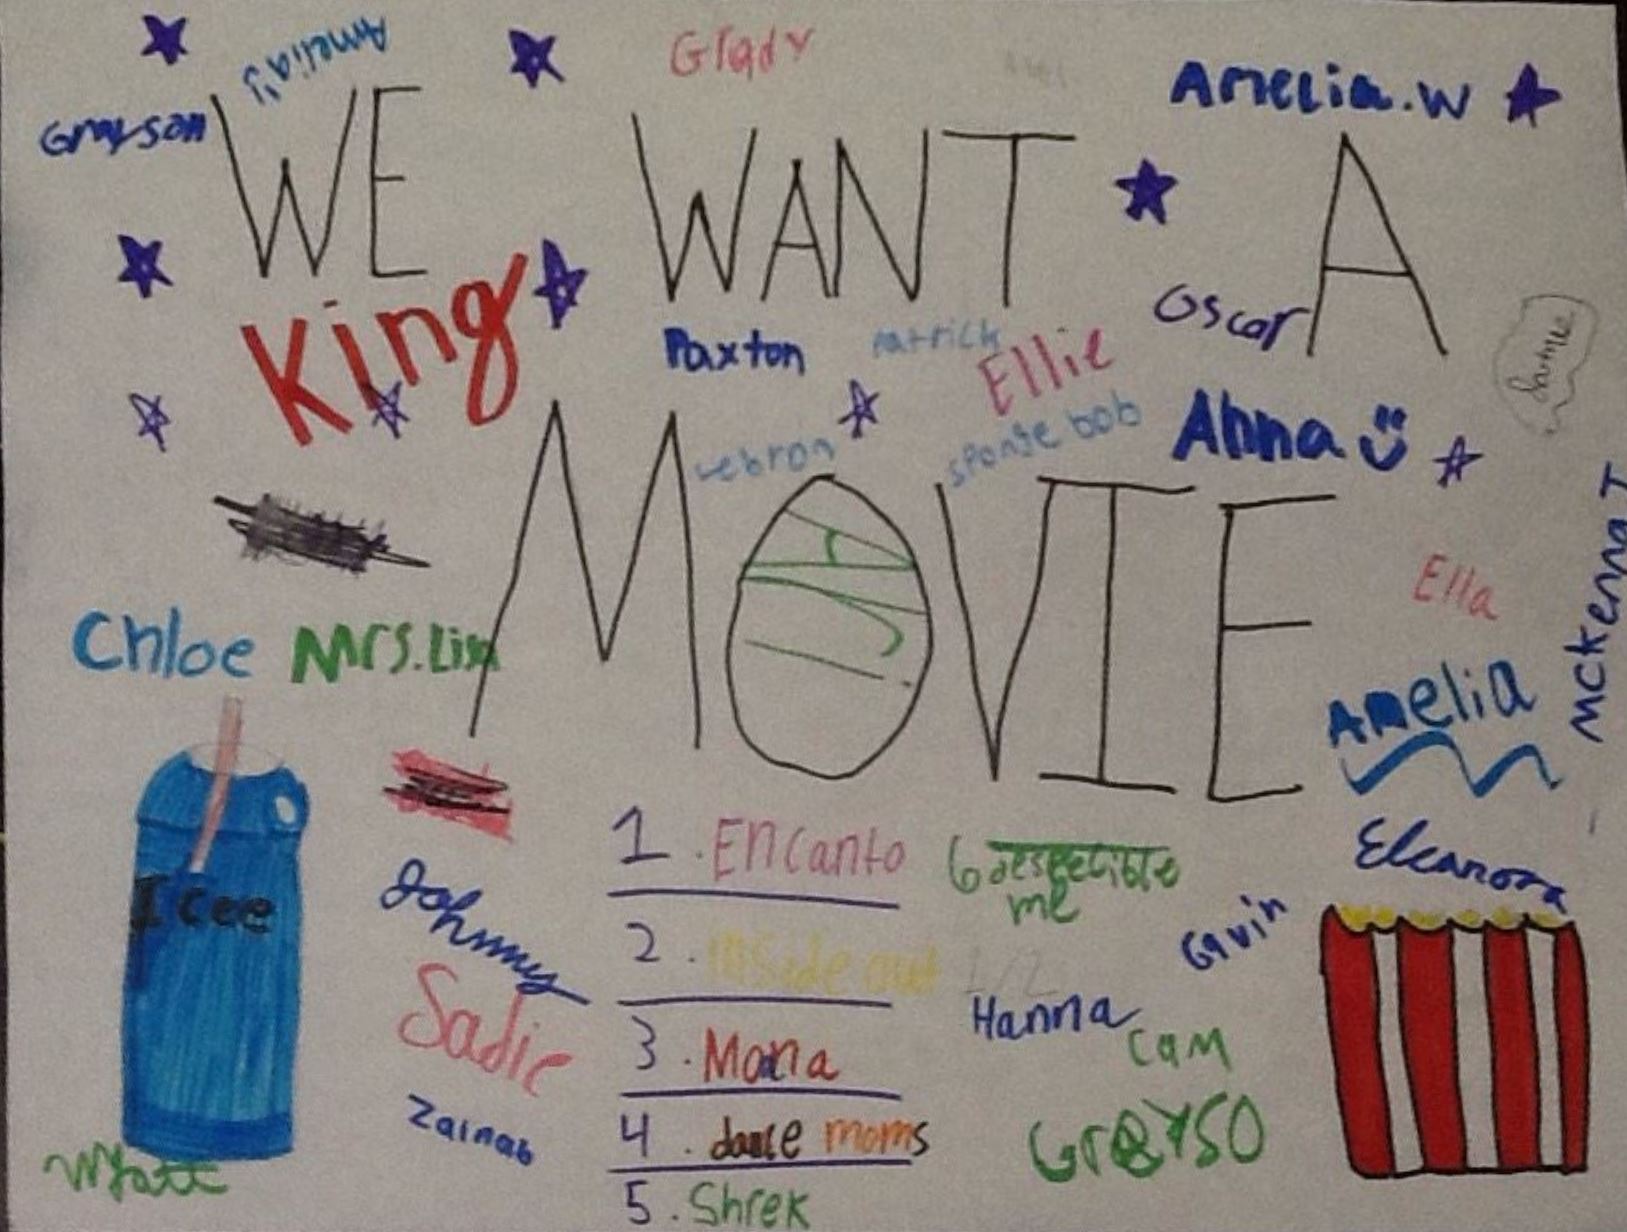 Amelia
Grady
Amelia.W
Grayson
WE WANT A
King
Oscar
Paxton
Patrick
Ellie
Lebron
sponge bob
Anna
MOVIE
Mckenna T
Ella
Chloe
Mrs.Lisa
Amelia
Eleanora
1. Encanto
6 despecible
me
ICee
Johnny
Gavin
2. inside out
1/2
Sadie
Hanna
3. Moana
Cam
Zainab
4. dance moms
Wyatt
5. Shrek